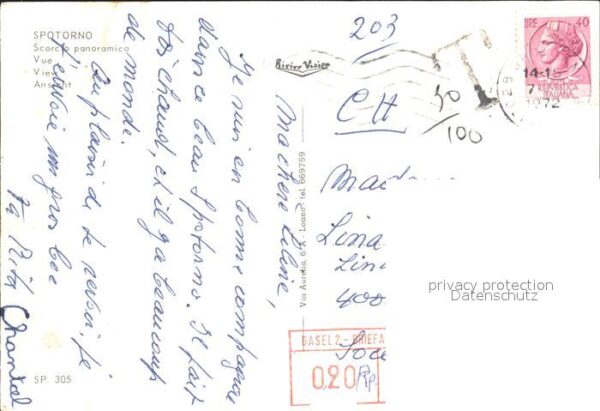 SPOTORNO
Scorcio panoramico
Vue
View
Ansicht
Ma chère Liline,
Je suis en bonne compagnie
dans ce beau Spotorno. Il fait
très chaud, et il y a beaucoup
de monde.
Au plaisir de te revoir, je
t'envoie un gros bec
Ta
Chantal
SP 305
Rivier Visier
Via Aurelia, 6/A - Loano - tel. 669759
203
T
50
100
CH
LIRE 40
REPVBBLICA
ITALIANA
14-15
7
1972
Lina
400
BASEL 2 - BRIEFA
0.20 Rp
privacy protection
Datenschutz